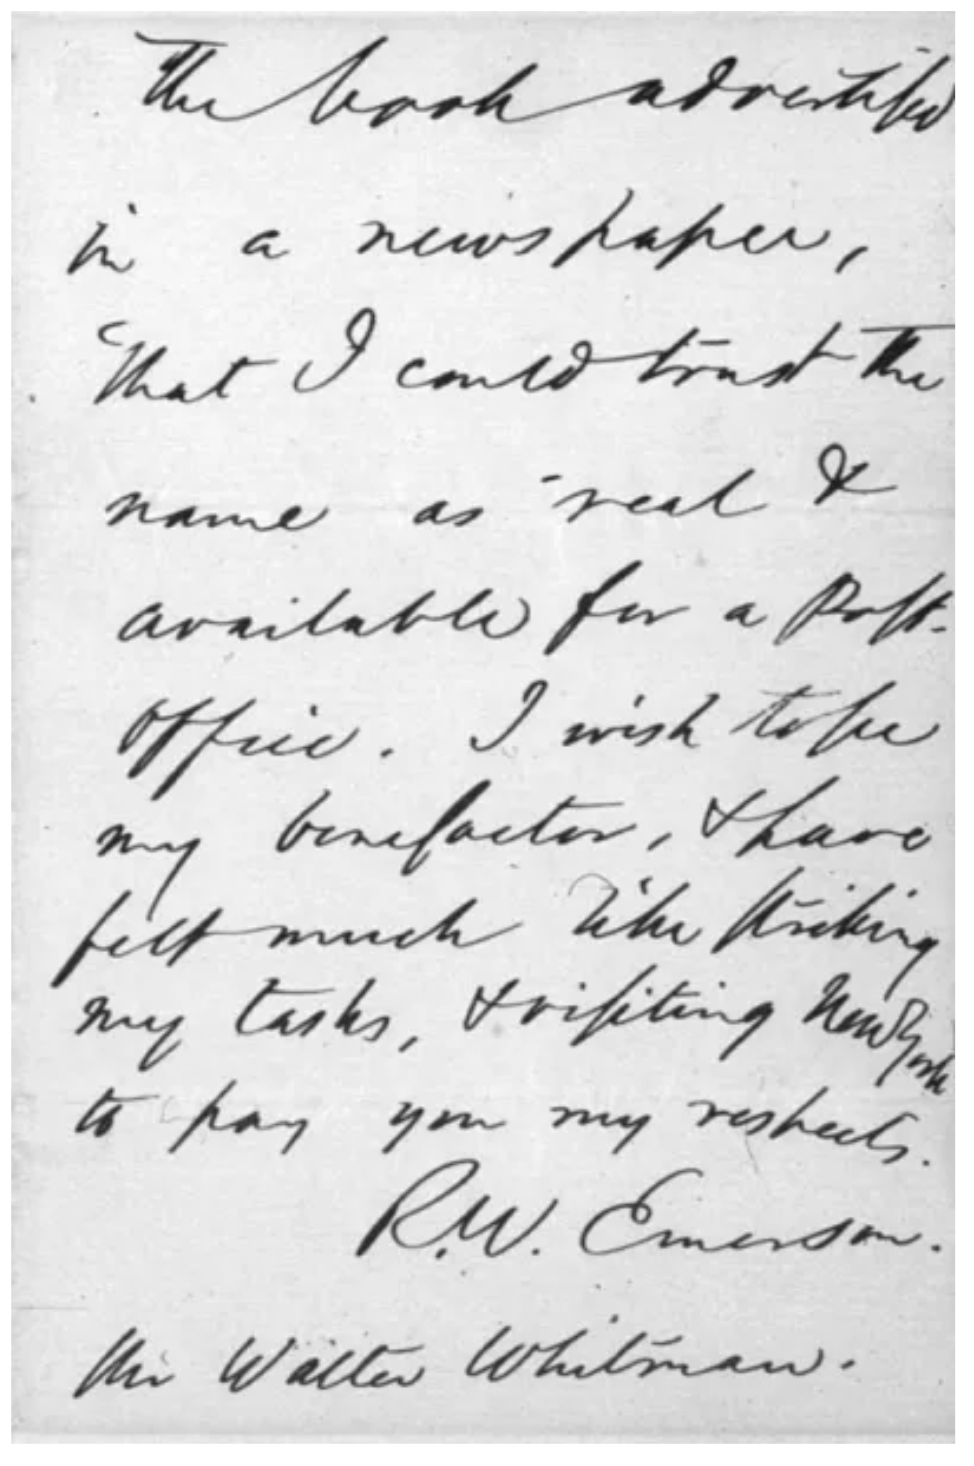 the book advertised
in a newspaper,
that I could trust the
name as real &
available for a Post-
office. I wish to see
my benefactor, & have
felt much like striking
my tasks, & visiting New York
to pay you my respects.
R.W. Emerson.
Mr Walter Whitman.